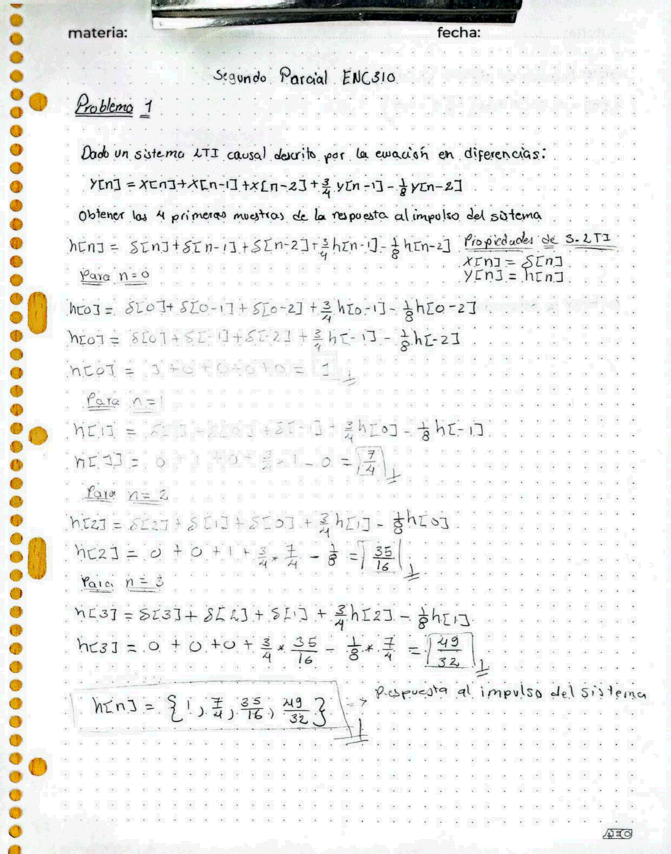 materia: fecha:
Segundo Parcial ENC310
Problema 1
Dado un sistema LTI causal descrito por la ecuación en diferencias:
y[n] = x[n]+x[n-1]+x[n-2]+3/4 y[n-1]-1/8 y[n-2]
Obtener las 4 primeras muestras de la respuesta al impulso del sistema
h[n] = δ[n]+δ[n-1]+δ[n-2]+3/4 h[n-1]-1/8 h[n-2] Propiedades de S.LTI
x[n] = δ[n]
Para n=0 y[n] = h[n]
h[0] = δ[0]+δ[0-1]+δ[0-2]+3/4 h[0-1]-1/8 h[0-2]
h[0] = δ[0]+δ[-1]+δ[-2]+3/4 h[-1]-1/8 h[-2]
h[0] = 1+0+0+0+0 = 1
Para n=1
h[1] = δ[1]+δ[0]+δ[-1]+3/4 h[0]-1/8 h[-1]
h[1] = 0+1+0+3/4·1-0 = 7/4
Para n=2
h[2] = δ[2]+δ[1]+δ[0]+3/4 h[1]-1/8 h[0]
h[2] = 0+0+1+3/4*7/4-1/8 = 35/16
Para n=3
h[3] = δ[3]+δ[2]+δ[1]+3/4 h[2]-1/8 h[1]
h[3] = 0+0+0+3/4*35/16-1/8*7/4 = 49/32
h[n] = {1, 7/4, 35/16, 49/32} → Respuesta al impulso del sistema